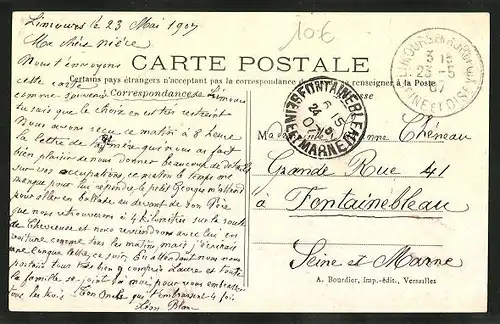 Limours le 23 Mai 1907
106
Ma chère nièce
CARTE POSTALE
Nous t'envoyons
Certains pays étrangers n'acceptant pas la correspondance se renseigner à la Poste
cette carte
Correspondance de Limours
comme souvenir
tu sais que le choix en est très restreint
Nous avons reçu ce matin à 8 heure
la lettre de qui nous as fait
bien plaisir de nous donner beaucoup de détails
sur vos occupations, ce matin le temps me
manque pour lui répondre le petit Georges m'attend
pour aller en ballade au devant de son Père
que nous retrouverons à 4 kilomètres sur la route
de Chevreuse et nous reviendrons avec lui en
voiture comme tous les matins, mais j'écrirai
une longue lettre ce soir. En attendant nous nous
portons tous très bien y compris Laure et toute
la famille se joint à moi pour vous embrasser
tous les trois. Ton Oncle qui t'embrassent 4 fois
Léon Blan
LIMOURS
3 15
23 -5
07
SEINE ET OISE
FONTAINEBLEAU
6 15
24 5
07
SEINE MARNE
Chéneau
Grande Rue 41
à Fontainebleau
Seine et Marne
A. Bourdier, Imp.-édit., Versailles